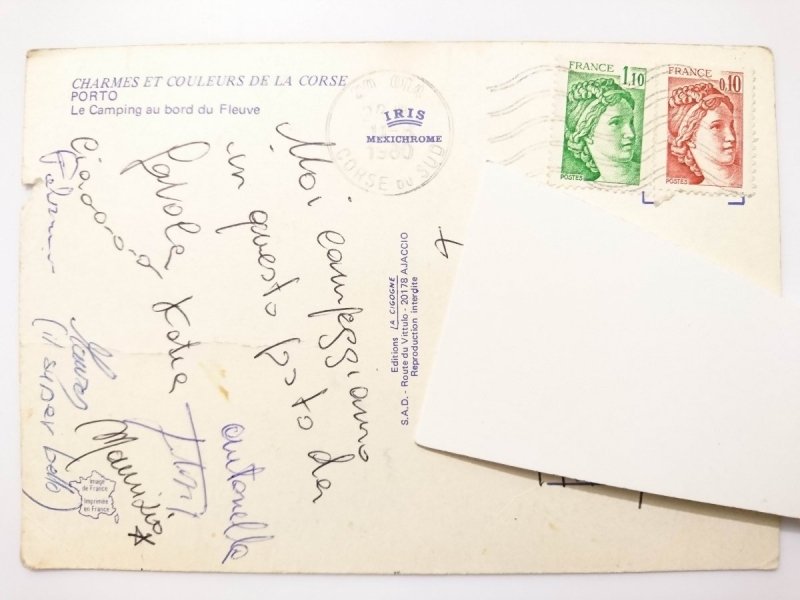 CHARMES ET COULEURS DE LA CORSE
PORTO
Le Camping au bord du Fleuve
IRIS
MEXICHROME
1980
CORSE DU SUD
FRANCE
1,10
POSTES
FRANCE
0,10
POSTES
Noi campeggiamo
in questo posto da
favola Katia
Ciaooooo
antonella
Maurizio
(il super bello)
Editions LA CIGOGNE
S.A.D. - Route du Vittulo - 20178 AJACCIO
Reproduction interdite
Image
de France
Imprimée
en France